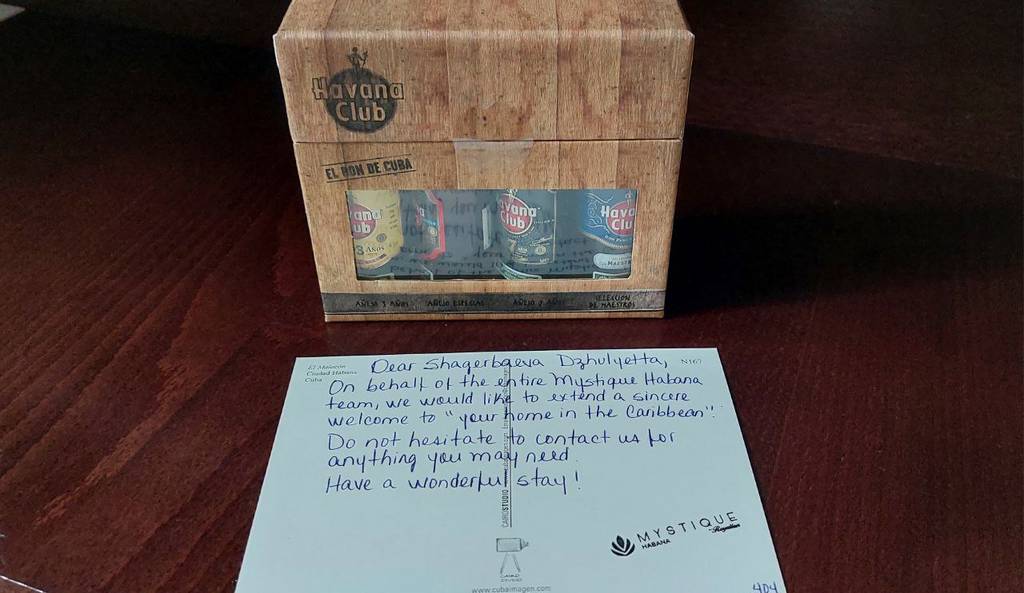 Havana
Club
EL RON DE CUBA
vana
ub
3 Años
vana
Club
7
Hava
Clu
MAESTR
AÑEJO 3 AÑOS
AÑEJO ESPECIAL
AÑEJO 7 AÑOS
SELECCIÓN
DE MAESTROS
El Malecón
Ciudad Habana
Cuba
N167
Dear Shagerbaeva Dzhulyetta,
On behalf of the entire Mystique Habana
team, we would like to extend a sincere
welcome to "your home in the Caribbean".
Do not hesitate to contact us for
anything you may need.
Have a wonderful stay!
CAIROSTUDIO
MYSTIQUE
HABANA
by Royalton
CAIRO
STUDIO
www.cubaimagen.com
404